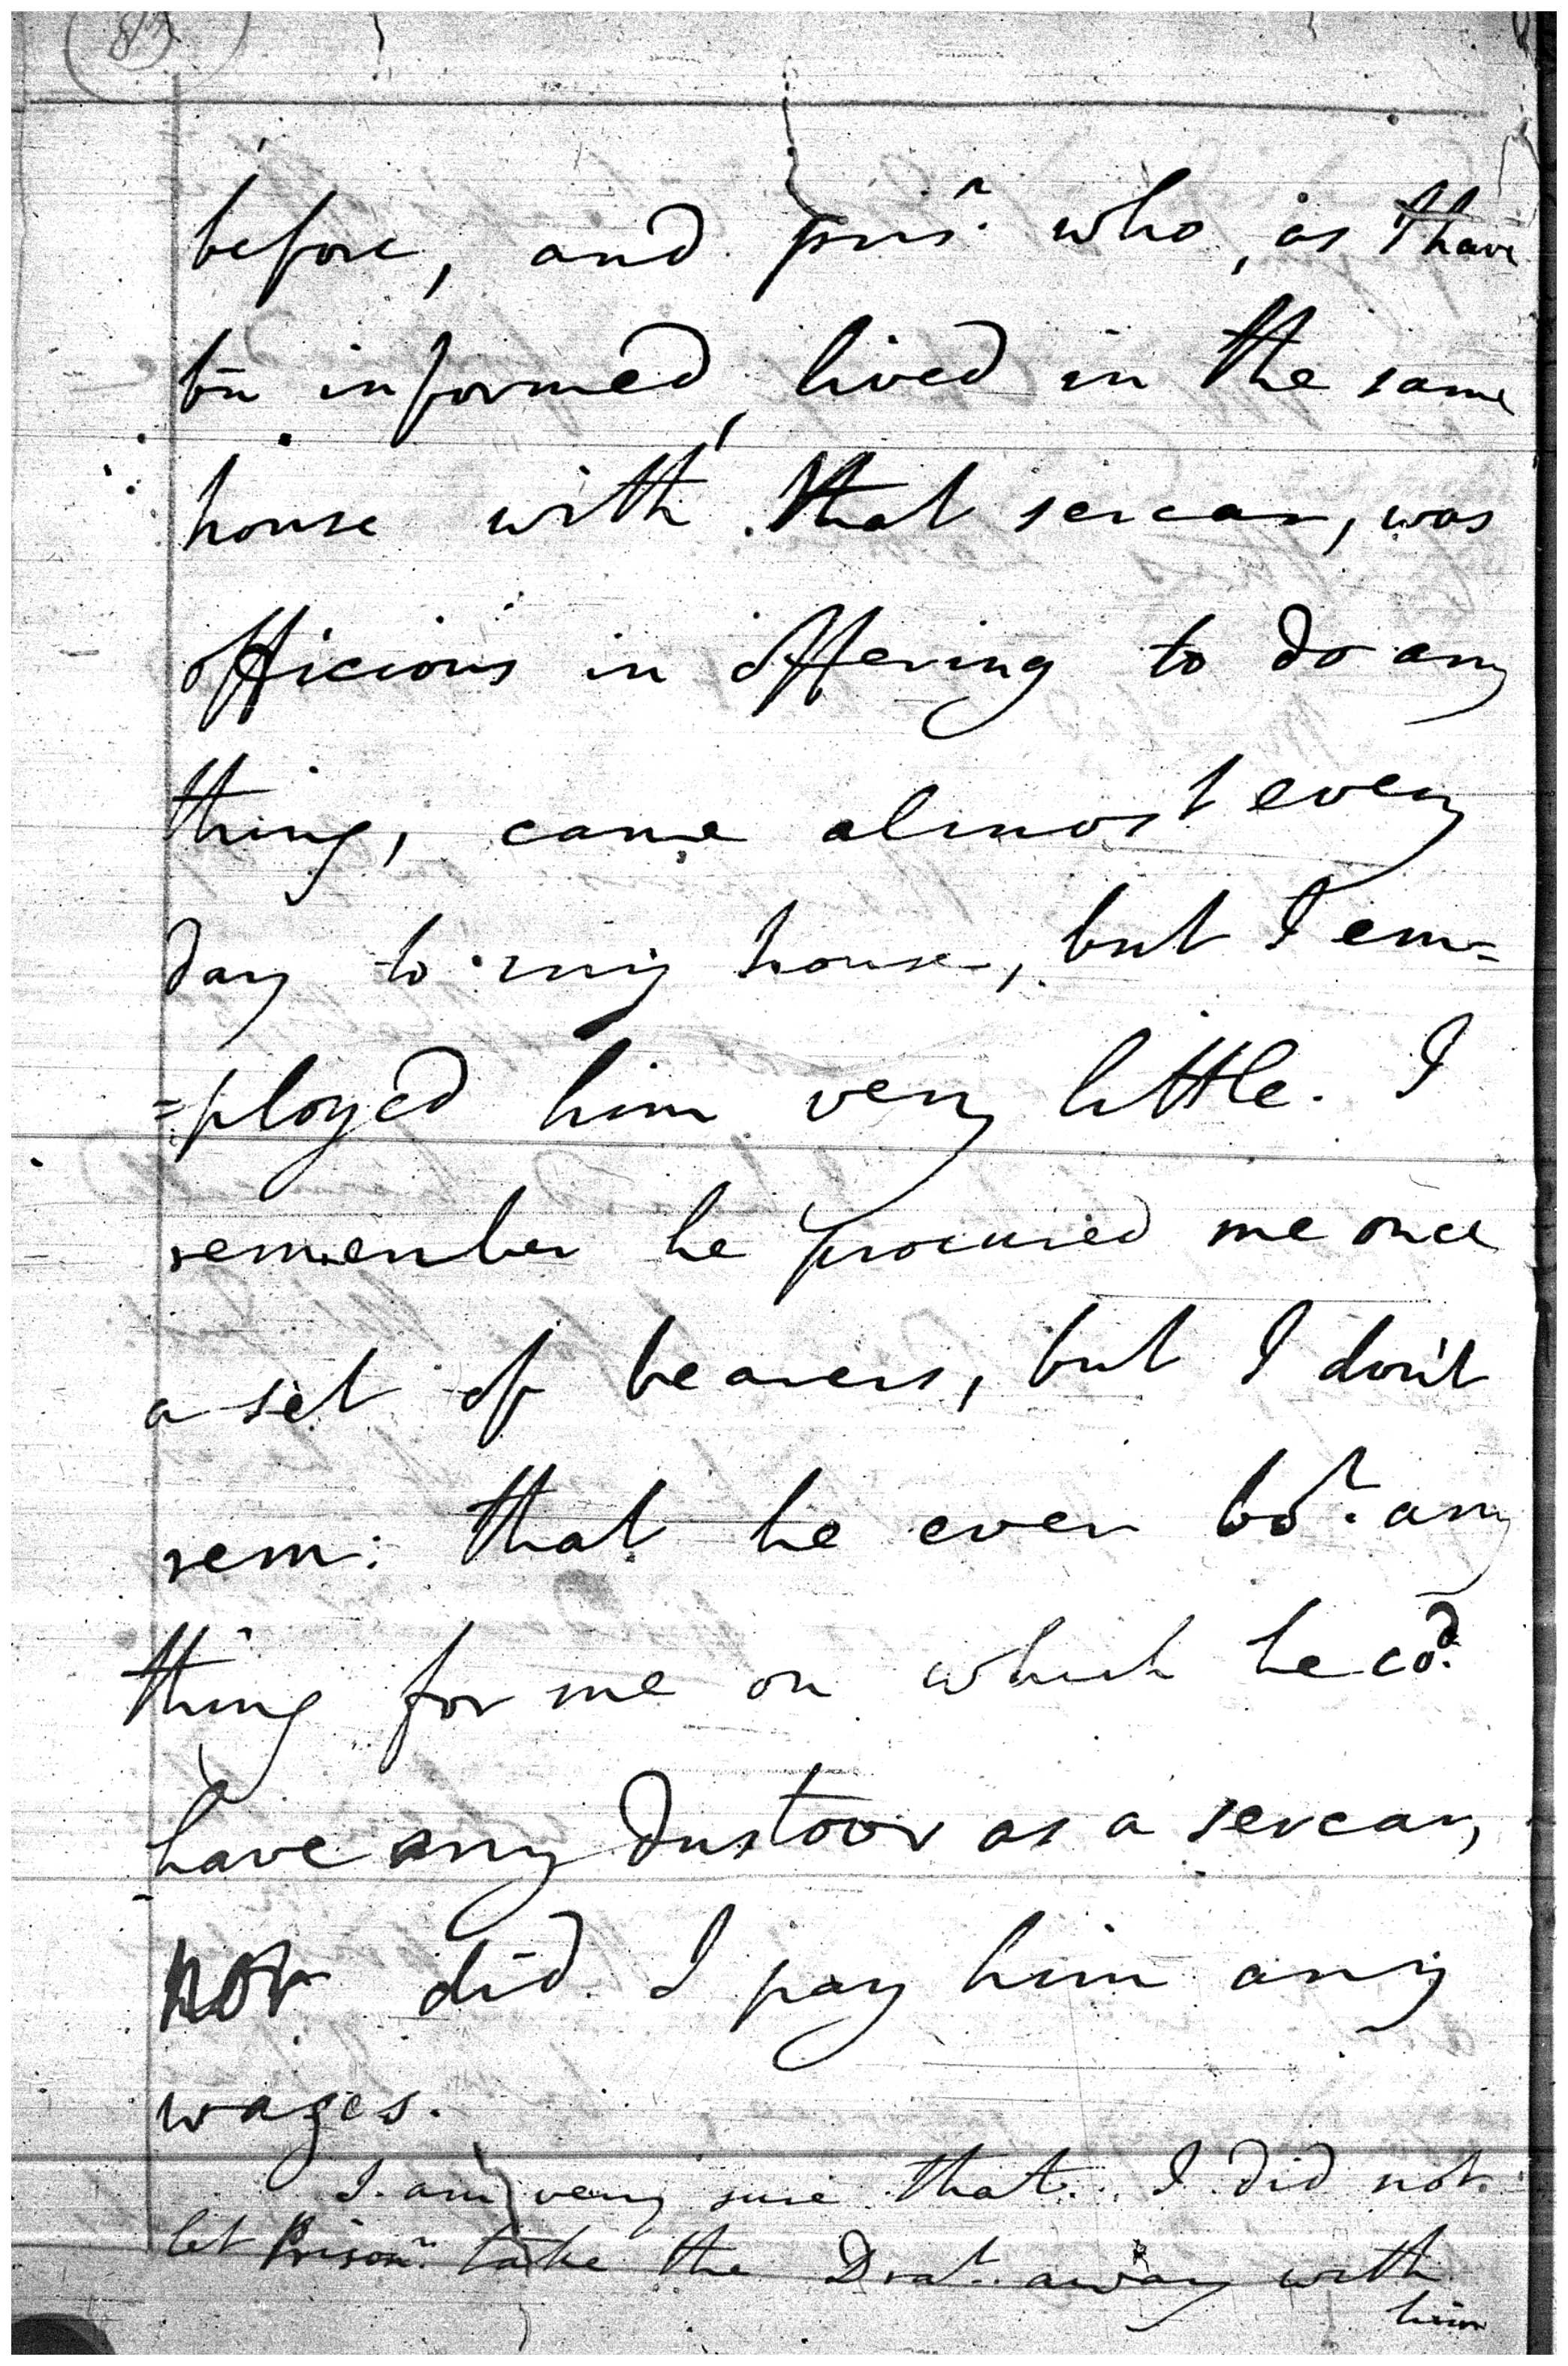 before, and pris^r. who, as I have
bn informed, lived in the same
house with that sercar, was
officious in offering to do any
thing, came almost every
day to my house, but I em=
=ployed him very little. I
remember he procured me once
a set of bearers, but I don't
rem: that he ever bo^t. any
thing for me on which he co^d.
have any dustoor as a sercar,
nor did I pay him any
wages.
I am very sure that I did not
let Prison^r. take the Dra^t. away with
him